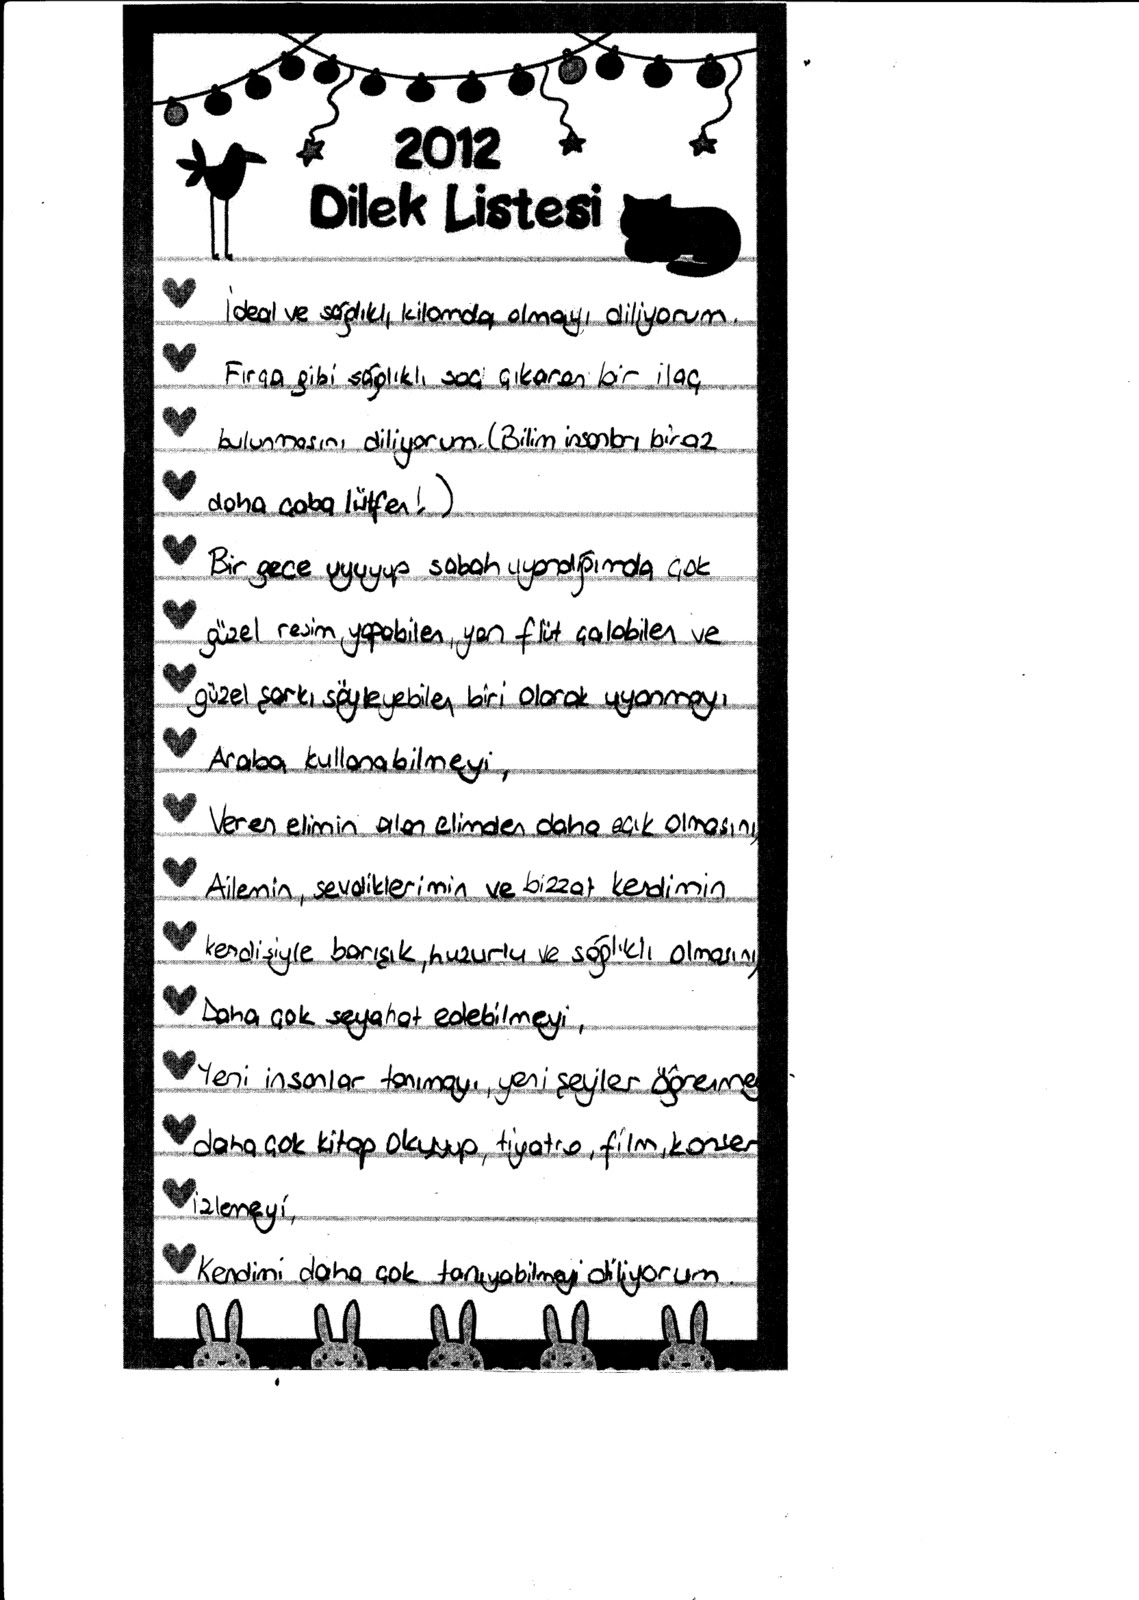 2012
Dilek Listesi
İdeal ve sağlıklı kilomda olmayı diliyorum.
Fırça gibi sağlıklı saç çıkaran bir ilaç
bulunmasını diliyorum. (Bilim insanları biraz
daha çaba lütfen! )
Bir gece uyuyup sabah uyandığımda çok
güzel resim yapabilen, yan flüt çalabilen ve
güzel şarkı söyleyebilen biri olarak uyanmayı
Araba kullanabilmeyi,
Veren elimin alan elimden daha açık olmasını,
Ailemin, sevdiklerimin ve bizzat kendimin
kendisiyle barışık, huzurlu ve sağlıklı olmasını,
Daha çok seyahat edebilmeyi,
Yeni insanlar tanımayı, yeni şeyler öğrenmey
daha çok kitap okuyup, tiyatro, film, konser
izlemeyi,
Kendimi daha çok tanıyabilmeyi diliyorum.